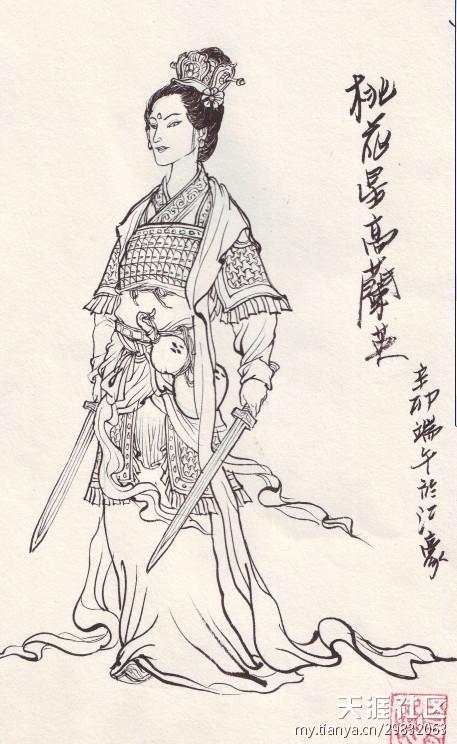 桃花星高蘭英
辛卯端午於江豪
天涯社区
my.tianya.cn/29832063